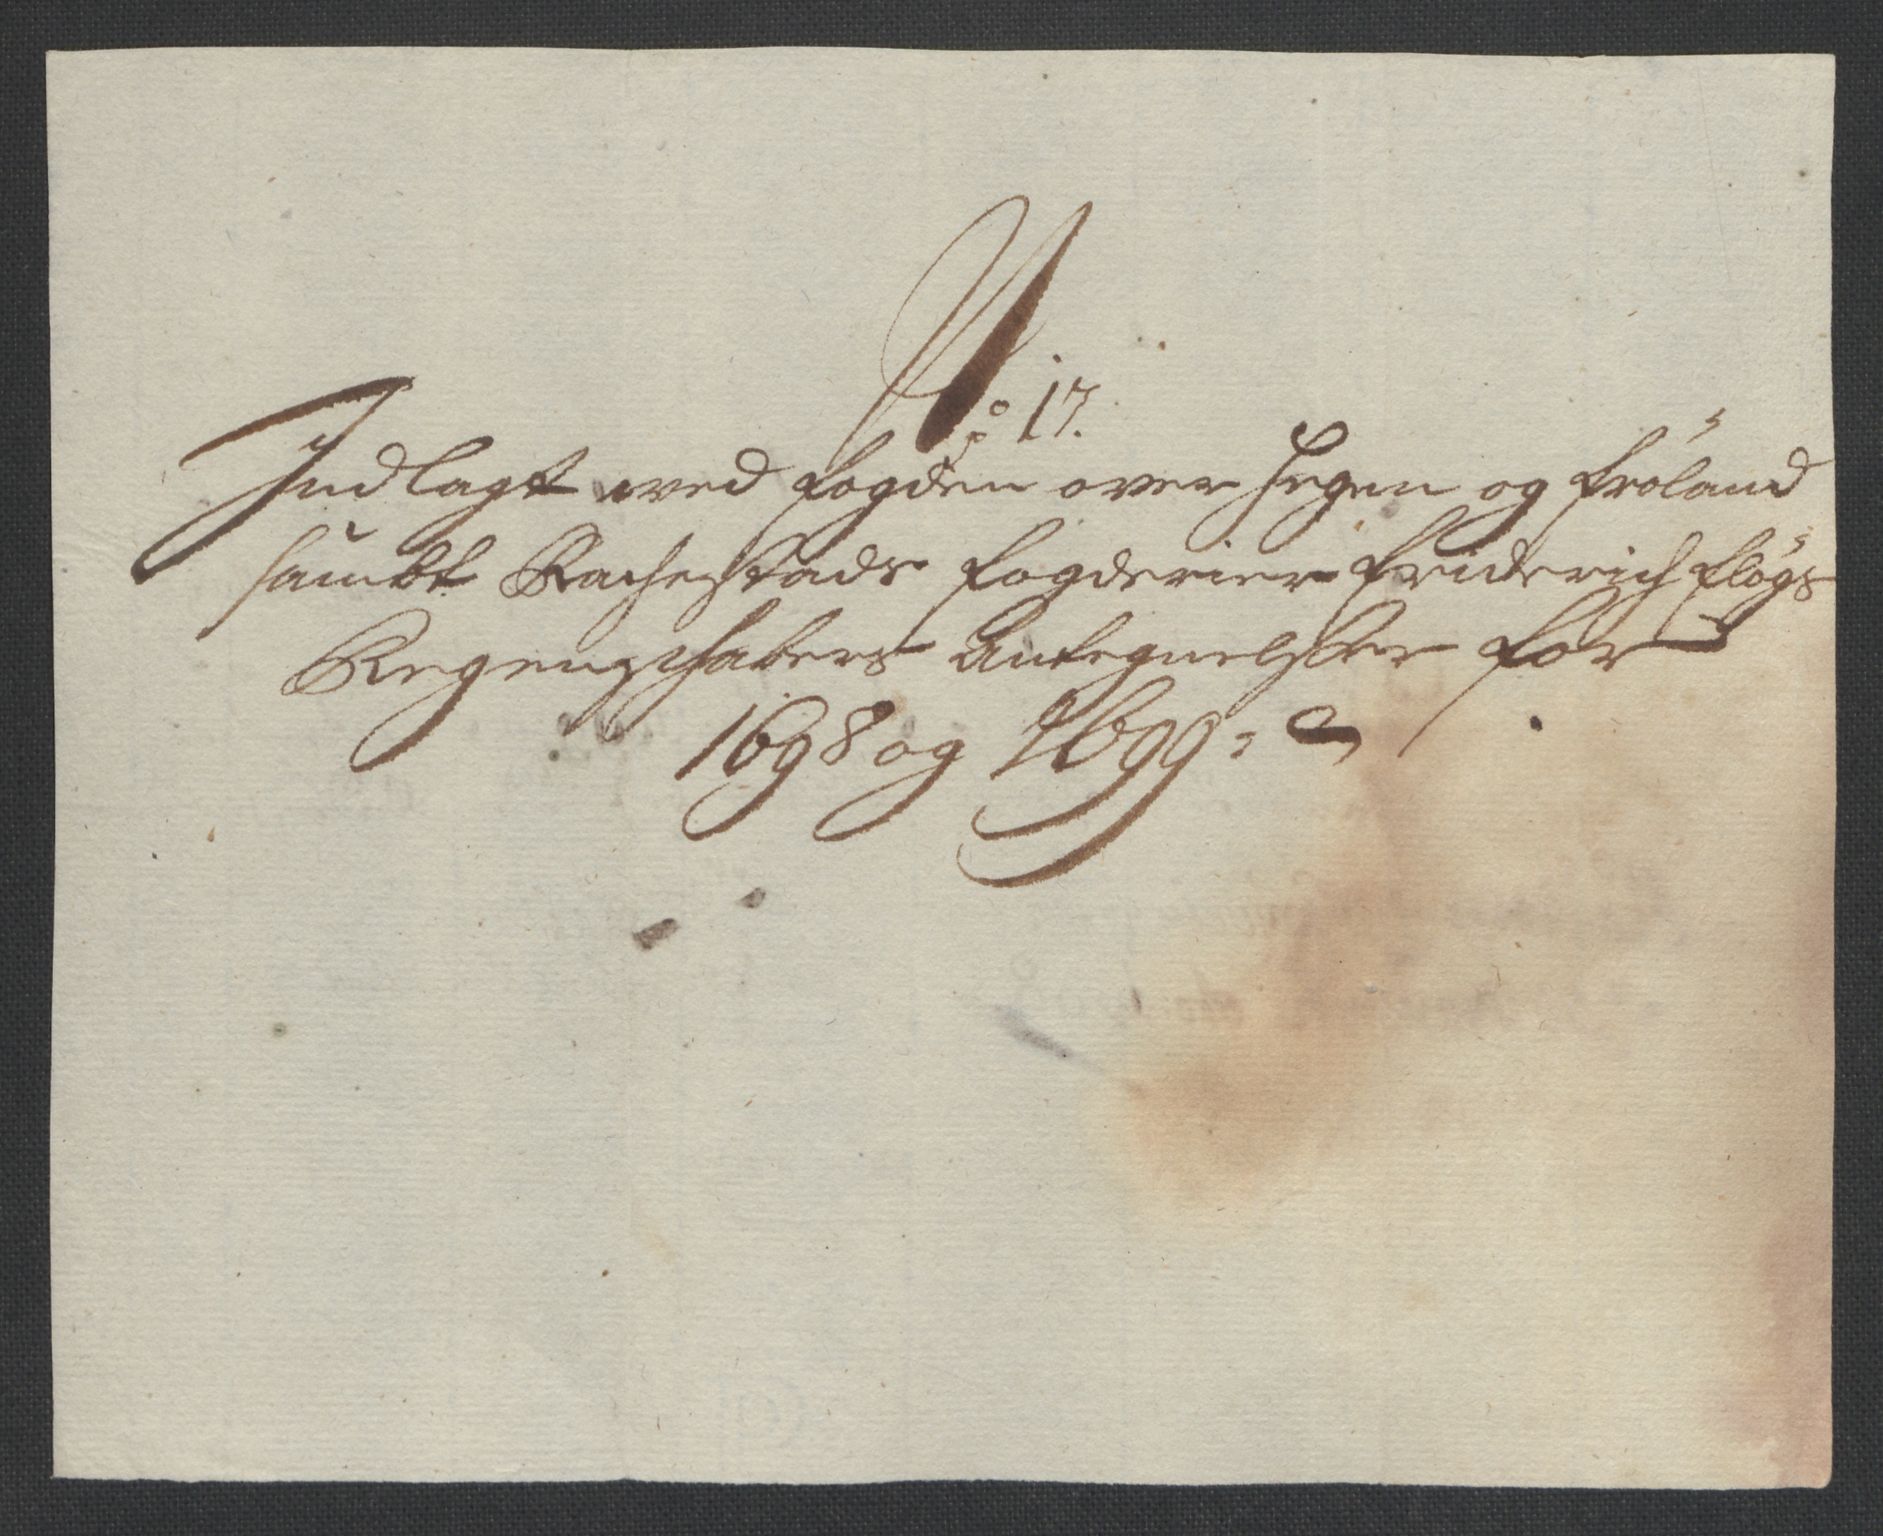 No: 17.
Indlagt wed fogden over Hegen og Fröland
sambt Rachestads fogderier Friderich Fløgs
Regenschabers Antegnelsker for
1698 og 1699: